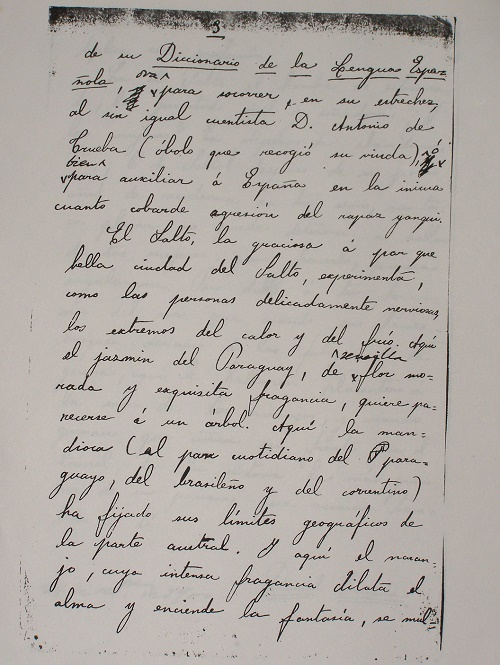 3
de su Diccionario de la Lengua Espa=
ñola, ora para socorrer, en su estrechez,
al sin igual cuentista D. Antonio de
Trueba (óbolo que recogió su viuda), ó
bien para auxiliar á España en la inicua
cuanto cobarde agresión del rapaz yanqui.
El Salto, la graciosa á par que
bella ciudad del Salto, experimenta,
como las personas delicadamente nerviosas,
los extremos del calor y del frío. Aquí
el jazmin del Paraguay, de sencilla flor mo=
rada y exquisita fragancia, quiere pa=
recerse á un árbol. Aquí la man=
dioca (el pan cuotidiano del para=
guayo, del brasileño y del correntino)
ha fijado sus límites geográficos de
la parte austral. Y aquí el naran=
jo, cuya intensa fragancia dilata el
alma y enciende la fantasía, se mul